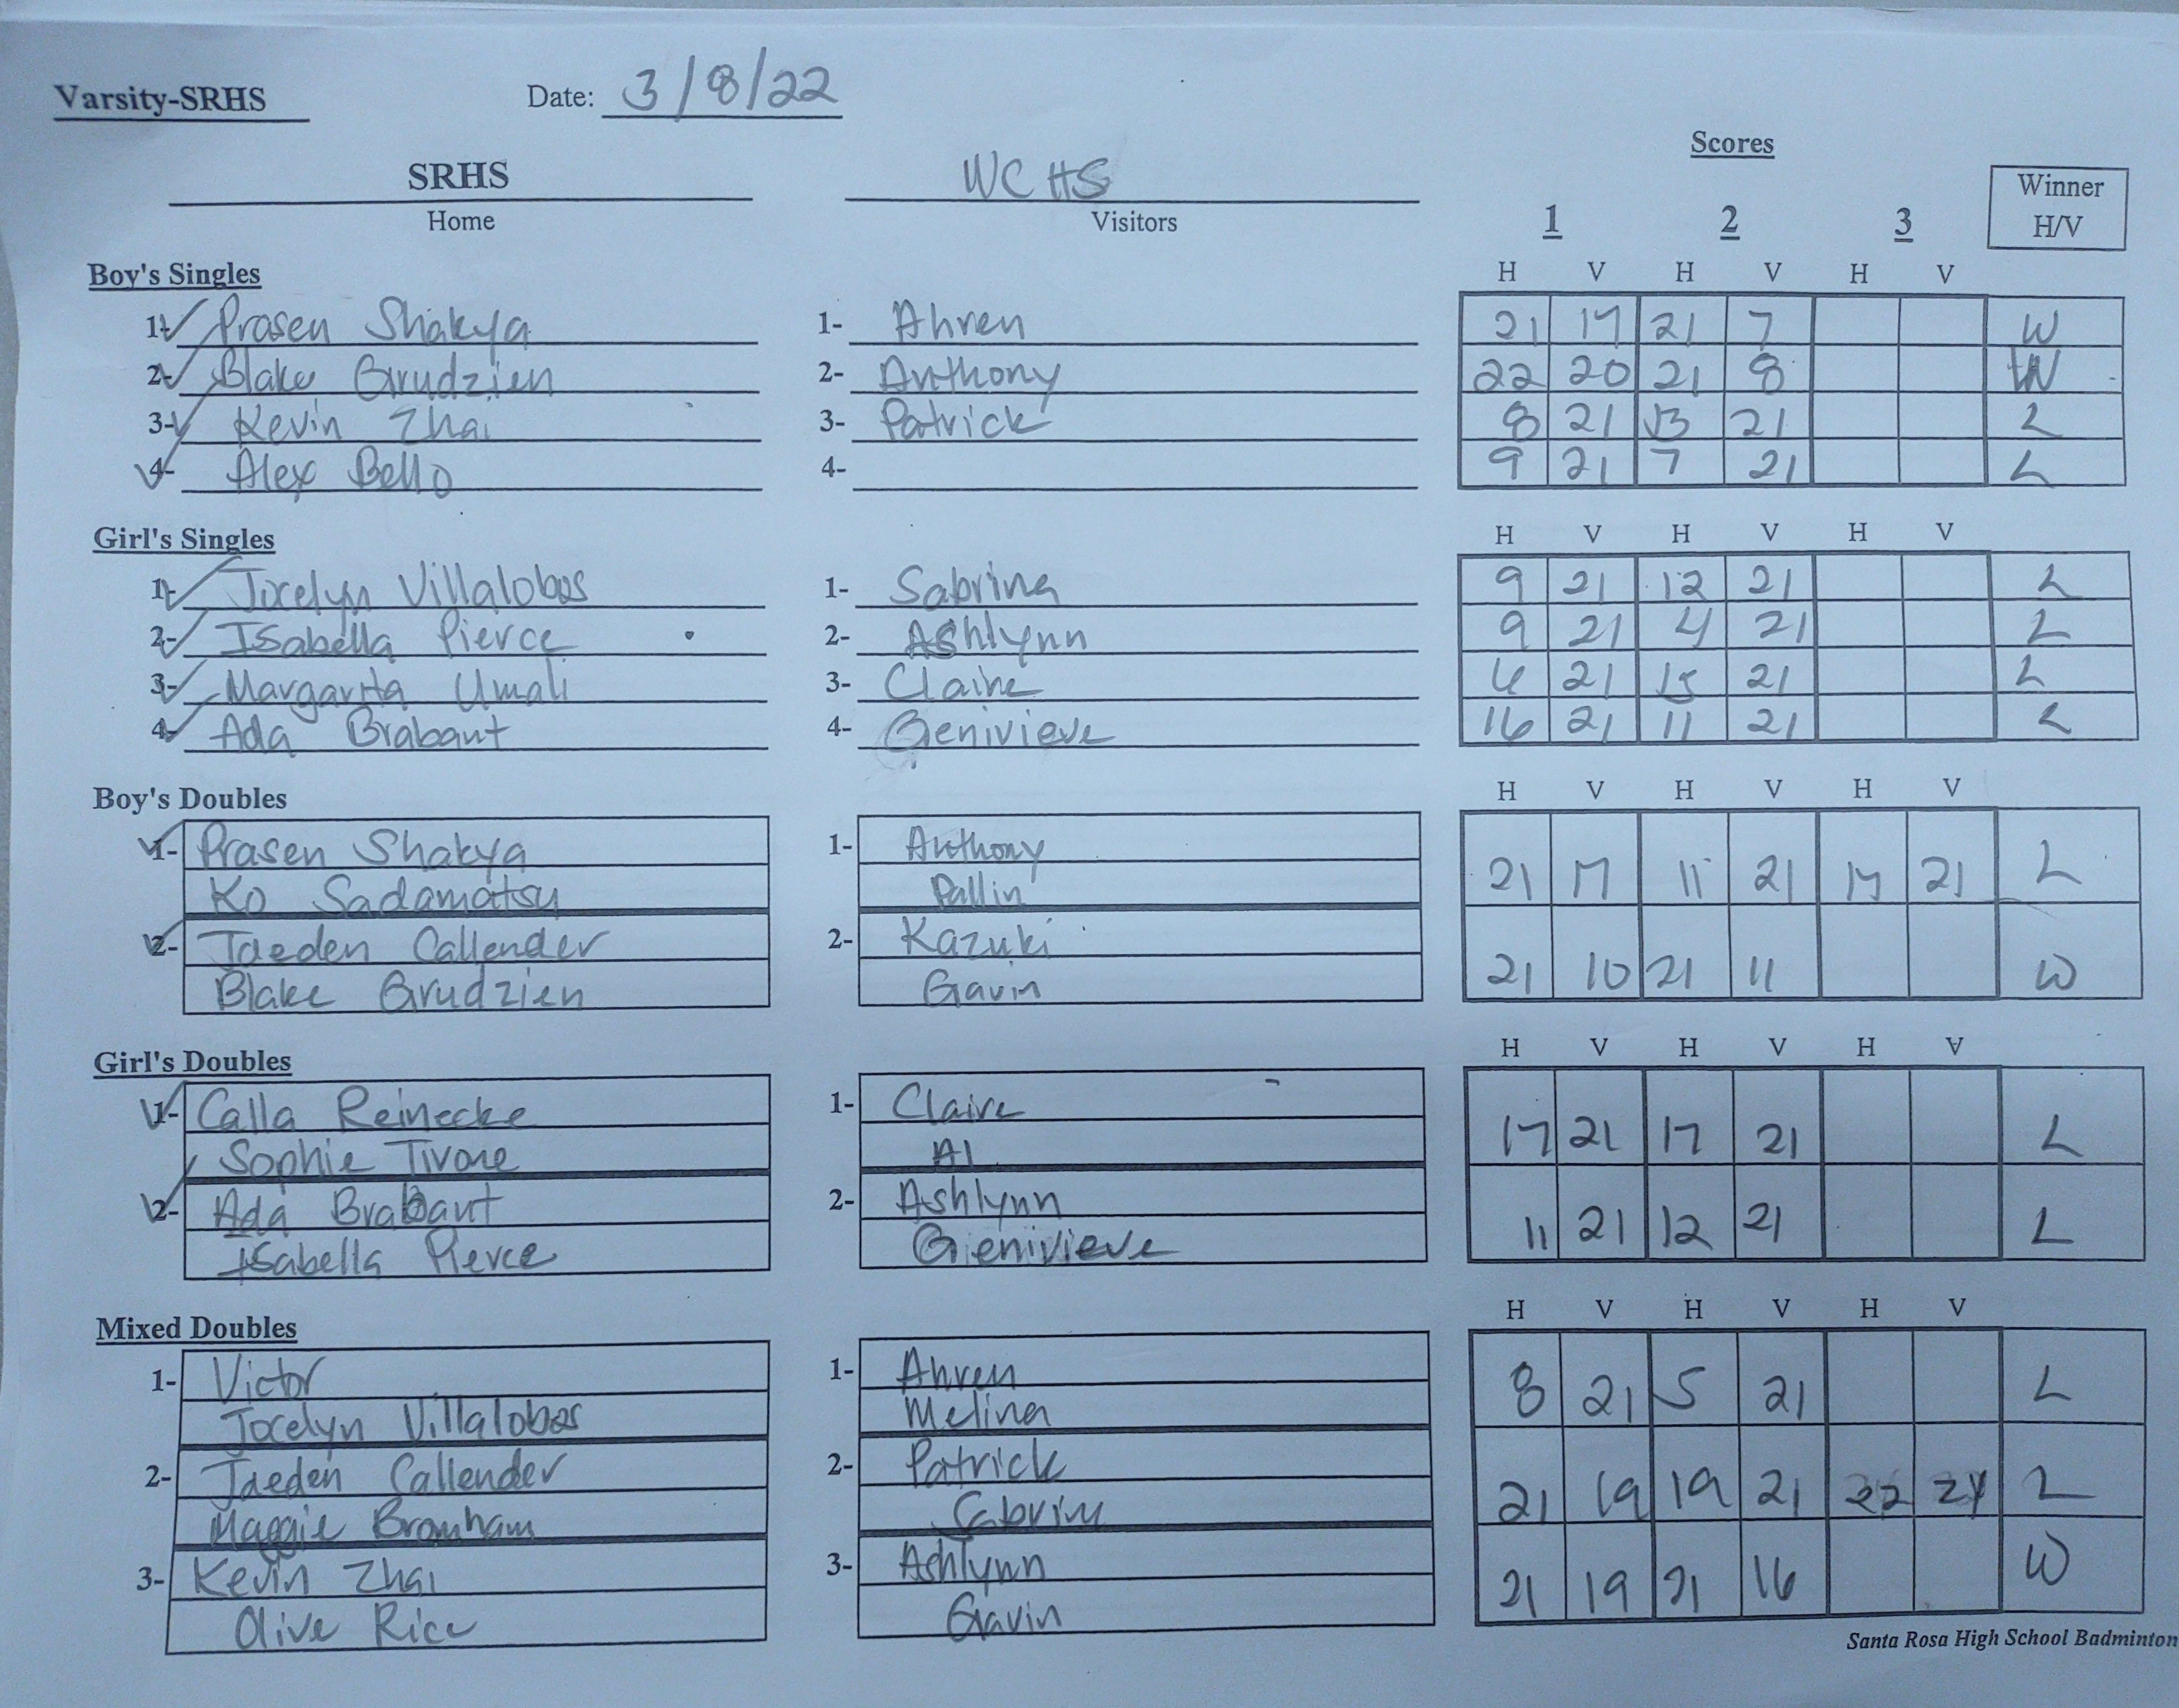 Varsity-SRHS Date: 3/8/22
Scores
SRHS WCHS Winner
Home Visitors 1 2 3 H/V
Boy's Singles H V H V H V
1- Prasen Shakya 1- Ahren 21 17 21 7 W
2- Blake Grudzien 2- Anthony 22 20 21 8 W
3- Kevin Zhai 3- Patrick 8 21 13 21 L
4- Alex Bello 4- 9 21 7 21 L
Girl's Singles H V H V H V
1- Jocelyn Villalobos 1- Sabrina 9 21 12 21 L
2- Isabella Pierce 2- Ashlynn 9 21 4 21 L
3- Margarita Umali 3- Claire 21 15 21 L
4- Ada Brabant 4- Genivieve 16 21 11 21 L
Boy's Doubles H V H V H V
1- Prasen Shakya 1- Anthony
Ko Sadamatsu Dallin 21 17 11 21 21 L
2- Jaeden Callender 2- Kazuki
Blake Grudzien Gavin 21 10 21 11 W
Girl's Doubles H V H V H V
1- Calla Reinecke 1- Claire
Sophie Tivone Al 17 21 17 21 L
2- Ada Brabant 2- Ashlynn
Isabella Pierce Genivieve 11 21 12 21 L
Mixed Doubles H V H V H V
1- Victor 1- Ahren
Jocelyn Villalobos Melina 8 21 5 21 L
2- Jaeden Callender 2- Patrick
Maggie Branham Sabrina 21 19 19 21 22 24 L
3- Kevin Zhai 3- Ashlynn
Olive Rice Gavin 21 19 21 16 W
Santa Rosa High School Badminton